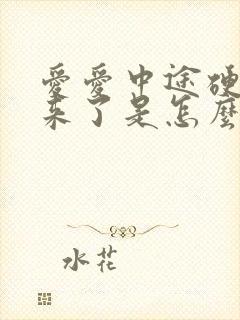 愛愛中途硬
來了是怎麼
水花